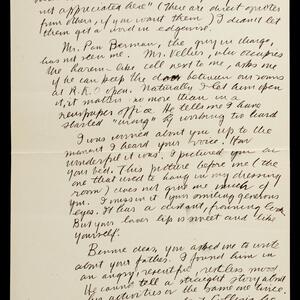 not appreciated here" (These are direct quotes
from others, if you want them) I didn't let
them get a word in edgewise.
Mr. Pan Berman, the guy in charge,
has not seen me. Mr. Kollier, who occupies
the harem like cell next to me, asks me
if he can keep the door between our rooms
at R.K.O open. Naturally I let him open
it, it matters no more than in a
newspaper office. He tells me I have
started "wrong" by working too hard
I was worried about you up to the
moment I heard your voice. How
wonderful it was. I pictured you in
your bed. This picture before me (the
one that used to hang in my dressing
room) does not give me much of
you. I miss in it your smiling generous
eyes. It has a distant, planning look.
But your lower lip is sweet and like
yourself.
Bennie dear, you asked me to write
about your father. I found him in
an angry, resentful, restless mood.
He cannot tell a straight story about
his activities or the same one twice.